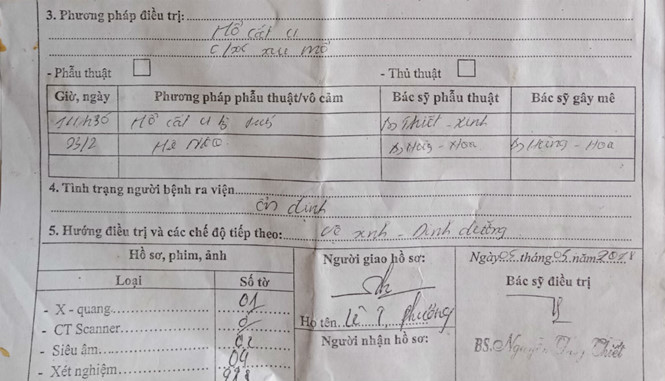 3. Phương pháp điều trị:
Mổ cắt u
c/sóc sau mổ
- Phẫu thuật - Thủ thuật
Giờ, ngày Phương pháp phẫu thuật/vô cảm Bác sỹ phẫu thuật Bác sỹ gây mê
14h30 Mổ cắt u Bs Thiết - Xinh
23/2 Mê NKQ Bs Hùng - Hoa Bs Hùng - Hoa
4. Tình trạng người bệnh ra viện
ổn định
5. Hướng điều trị và các chế độ tiếp theo: Vệ sinh - Dinh dưỡng
Hồ sơ, phim, ảnh Người giao hồ sơ: Ngày tháng năm 2018
Loại Số tờ Bác sỹ điều trị
- X - quang 01
- CT Scanner
Họ tên Lê T Phương
- Siêu âm 02
Người nhận hồ sơ: BS. Nguyễn Thiết
- Xét nghiệm 09